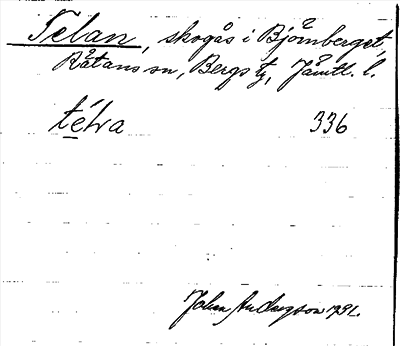 Telan, skogås i Björnberget,
Råtans sn, Bergs tg, Jämtl. l.
tétra 336
John Andersson 1931.